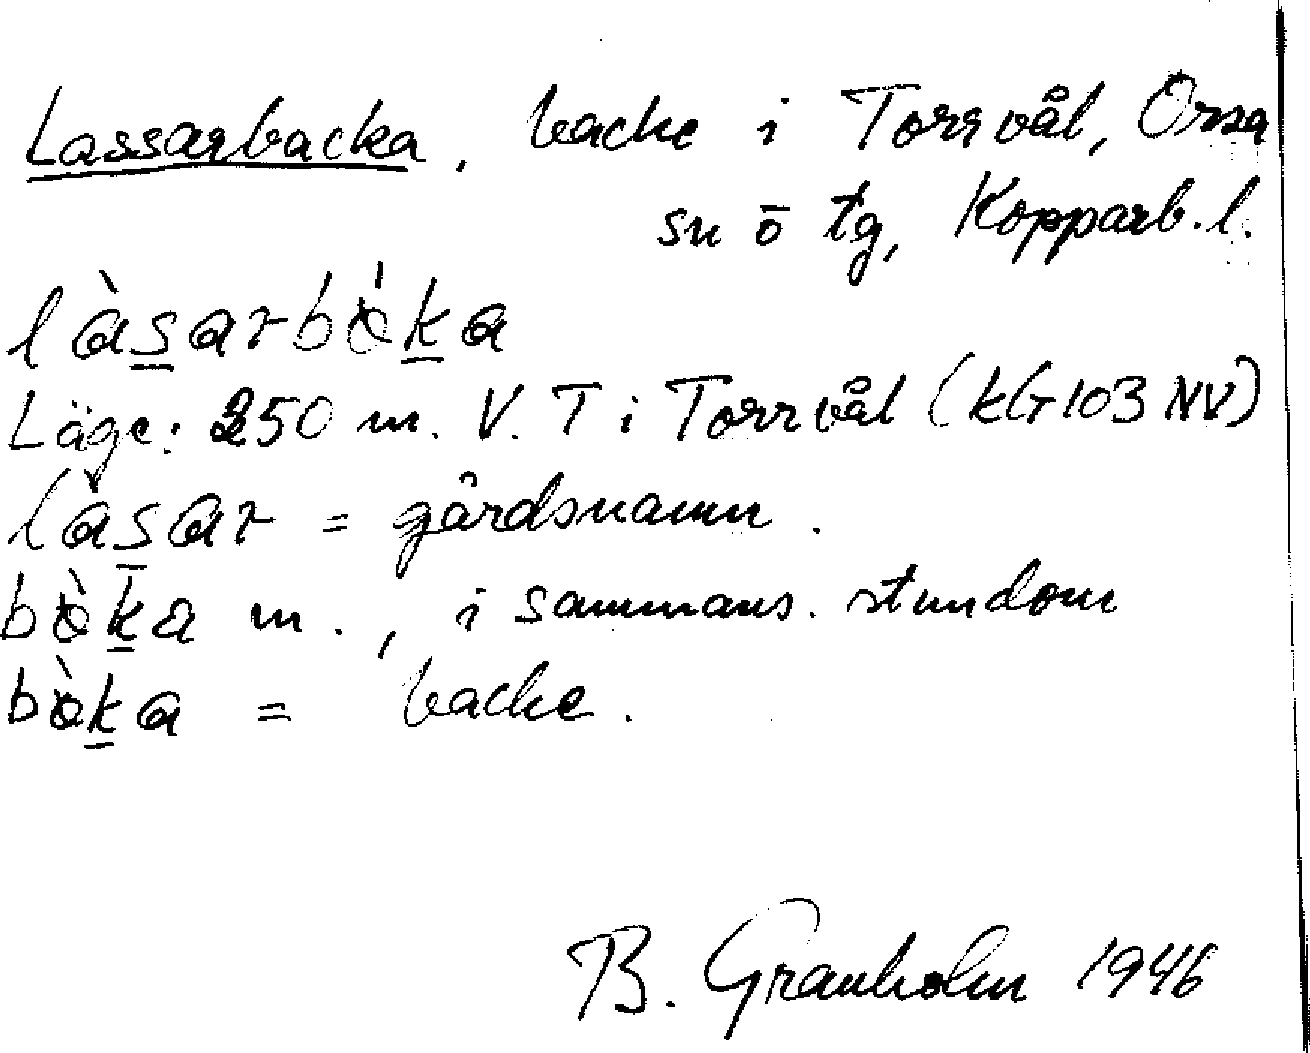 Lassarbacka, backe i Torrvål, Orsa
sn o tg, Kopparb. l.
làsarbàka
Läge: 250 m. V. T i Torrvål (kG 103 NV)
làsar = gårdsnamn.
bàka m., i sammans. stundom
bàka = backe.
B. Granholm 1946